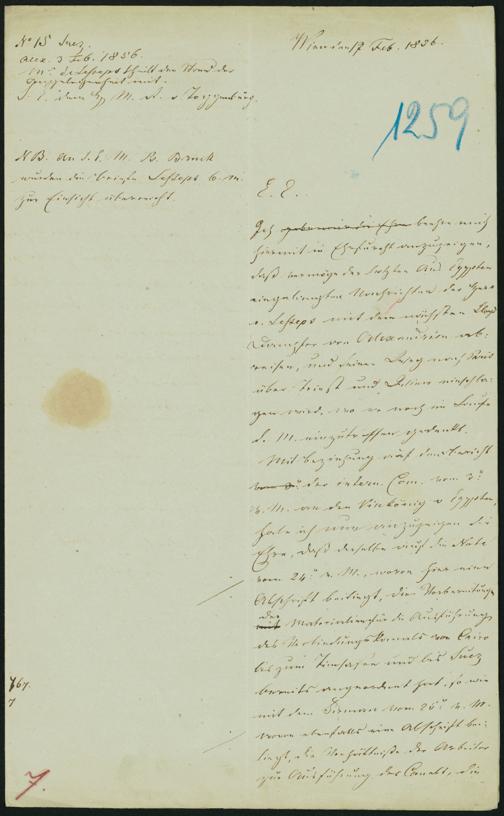 No 15 Suez.
Alex. 3 Feb. 1856.
Mr. de Lesseps theilt den Stand der
Angelegenheit mit.
S. E. dem H. M. R. v Toggenburg.
Wien den 17 Feb. 1856.
1259
NB. An S. E. M. B. Bruck
wurden die Briefe Lesseps b. m.
zur Einsicht überreicht.
E. E.
Ich gebe mir die Ehre beehre mich
hiermit in Ehrfurcht anzuzeigen,
daß vermöge der letzten aus Egypten
eingelangten Nachrichten der Herr
v. Lesseps mit dem nächsten Lloyd
Dampfer von Alexandrien ab-
reisen, und seinen Weg nach Paris
über Triest und Wien einschla-
gen wird, wo er noch im Laufe
d. M. einzutreffen gedenkt.
Mit Beziehung auf den Bericht
vom 3n der intern. Com. vom 3n
v. M. an den Vizekönig v Egypten,
habe ich nun anzuzeigen die
Ehre, daß derselbe auf die Note
vom 24n v. M., wovon hier eine
Abschrift beiliegt, die Vorbereitung
der
mit Materialien für die Ausführung
des Verbindungskanals von Cairo
bis zum Timsah See und bis Suez
bereits angeordnet hat, so wie
mit dem Firman vom 26n v. M.
wovon ebenfalls eine Abschrift bei-
liegt, die Verhältniße der Arbeiter
zur Ausführung des Canals, die
767.
7
7.